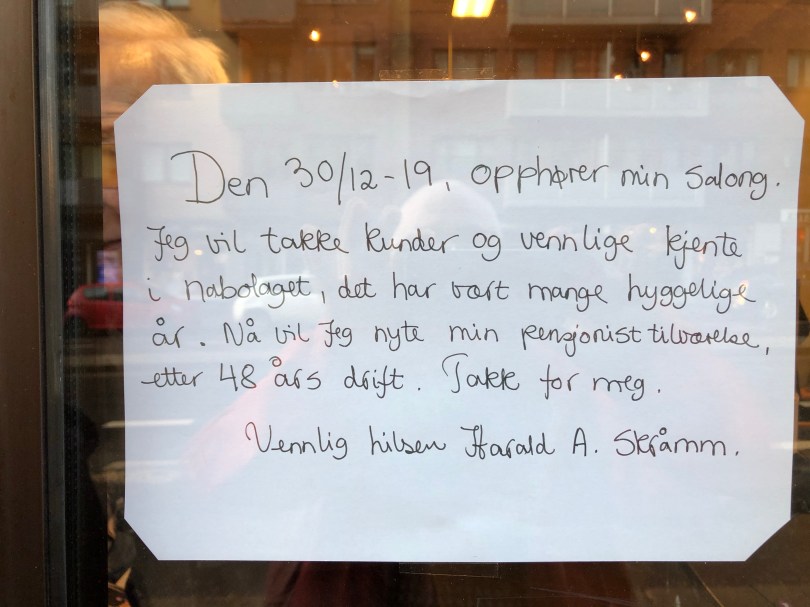 Den 30/12-19, opphører min Salong.
Jeg vil takke kunder og vennlige kjente
i nabolaget, det har vært mange hyggelige
år. Nå vil Jeg nyte min pensjonist tilværelse,
etter 48 års drift. Takk for meg.
Vennlig hilsen Harald A. Skråmm.